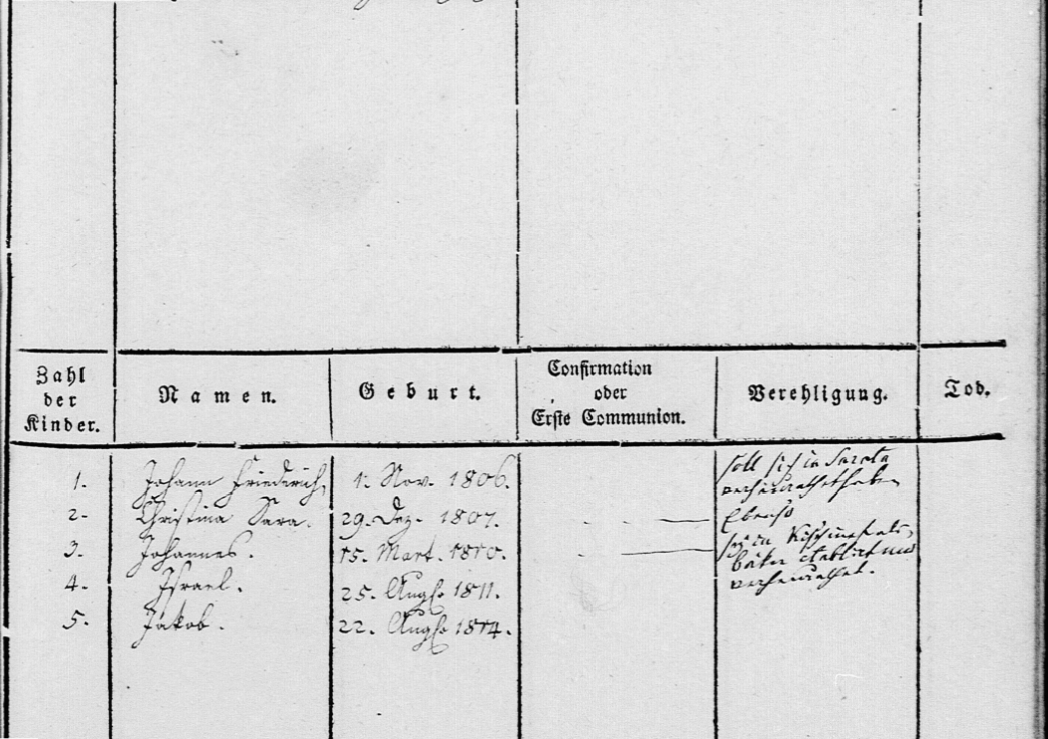 Zahl
der
Kinder.
Namen.
Geburt.
Confirmation
oder
Erste Communion.
Verehligung.
Tod.
1. Johann Friedrich, 1. Nov. 1806. soll sich in Sarata
verheurathet haben
2. Christina Sara. 29. Dez. 1807. Ebenso
3. Johannes. 15. Mart. 1810. sey in Kischinef als
Bäker etablirt und
4. Israel. 25. Augs. 1811. verheurathet.
5. Jakob. 22. Augs. 1814.